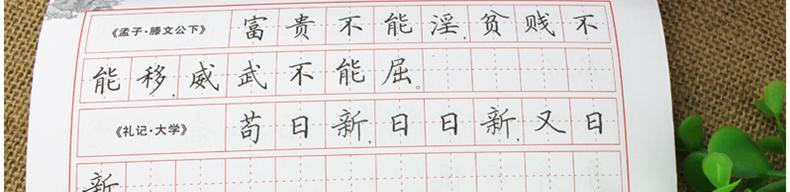 《孟子·滕文公下》 富贵不能淫,贫贱不
能移,威武不能屈。
《礼记·大学》 苟日新,日日新,又日
新